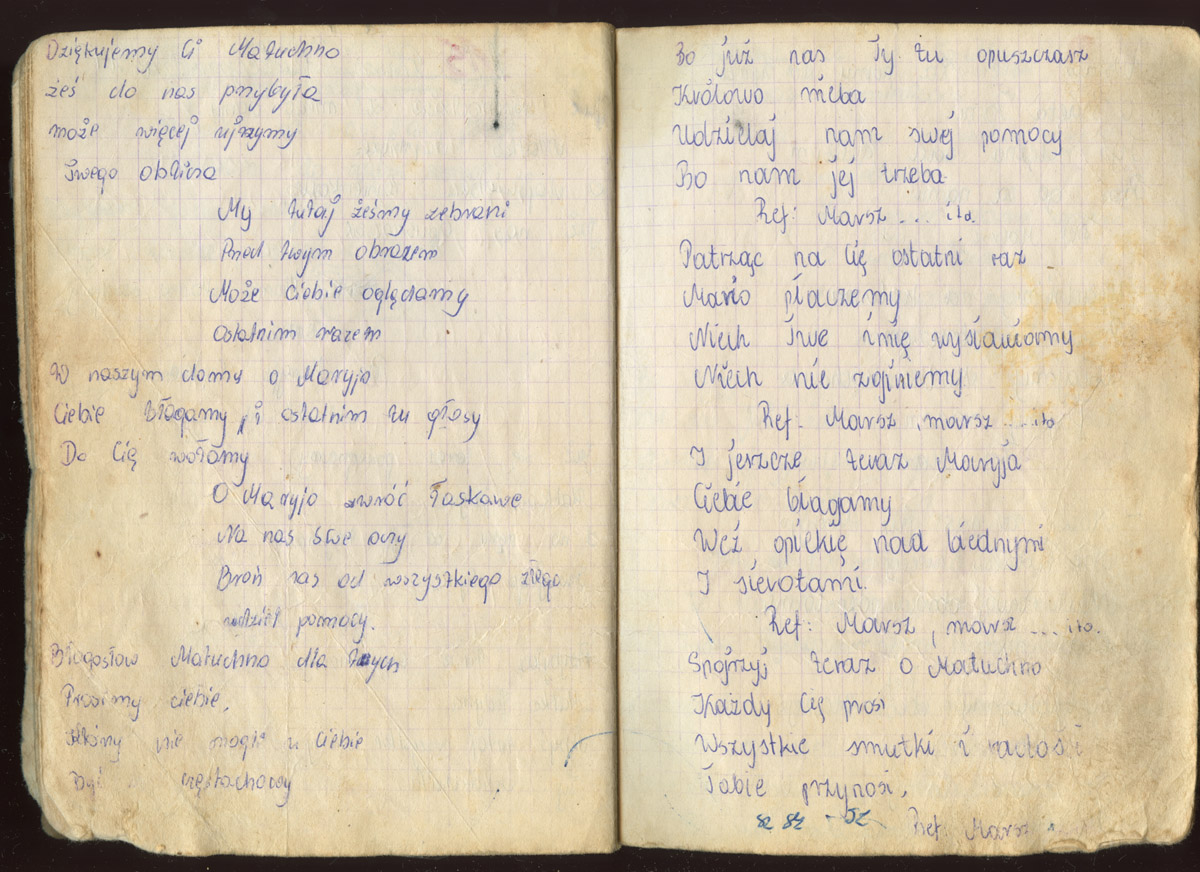 Dziękujemy Ci Matuchno
żeś do nas przybyła
może więcej ujrzymy
Swego oblicza
My tutaj żeśmy zebrani
Przed twym obrazem
Może Ciebie oglądamy
ostatnim razem
W naszym domy o Maryjo
Ciebie błagamy, i ostatnim tu głosy
Do Cię wołamy
O Maryjo zwróć łaskawe
Na nas swe oczy
Broń nas od wszystkiego złego
udziel pomocy.
Błogosław Matuchno dla tych
Prosimy ciebie,
którzy nie mogli u Ciebie
Być w częstochowy
Bo już nas Ty tu opuszczasz
Królowo nieba
Udzielaj nam swej pomocy
Bo nam jej trzeba
Ref: Marsz ... itd.
Patrząc na Cię ostatni raz
Mario płaczemy
Niech Twe imię wysławiamy
Niech nie zginiemy
Ref. Marsz, marsz .... itd
I jerzcze teraz Maryja
Ciebie błagamy
Weź opiekię nad biednymi
I sierotami.
Ref: Marsz, marsz .... itd.
Spójrzyj teraz o Matuchno
Każdy Cię prosi
Wszystkie smutki i radości
Tobie przynosi,
Ref. Marsz